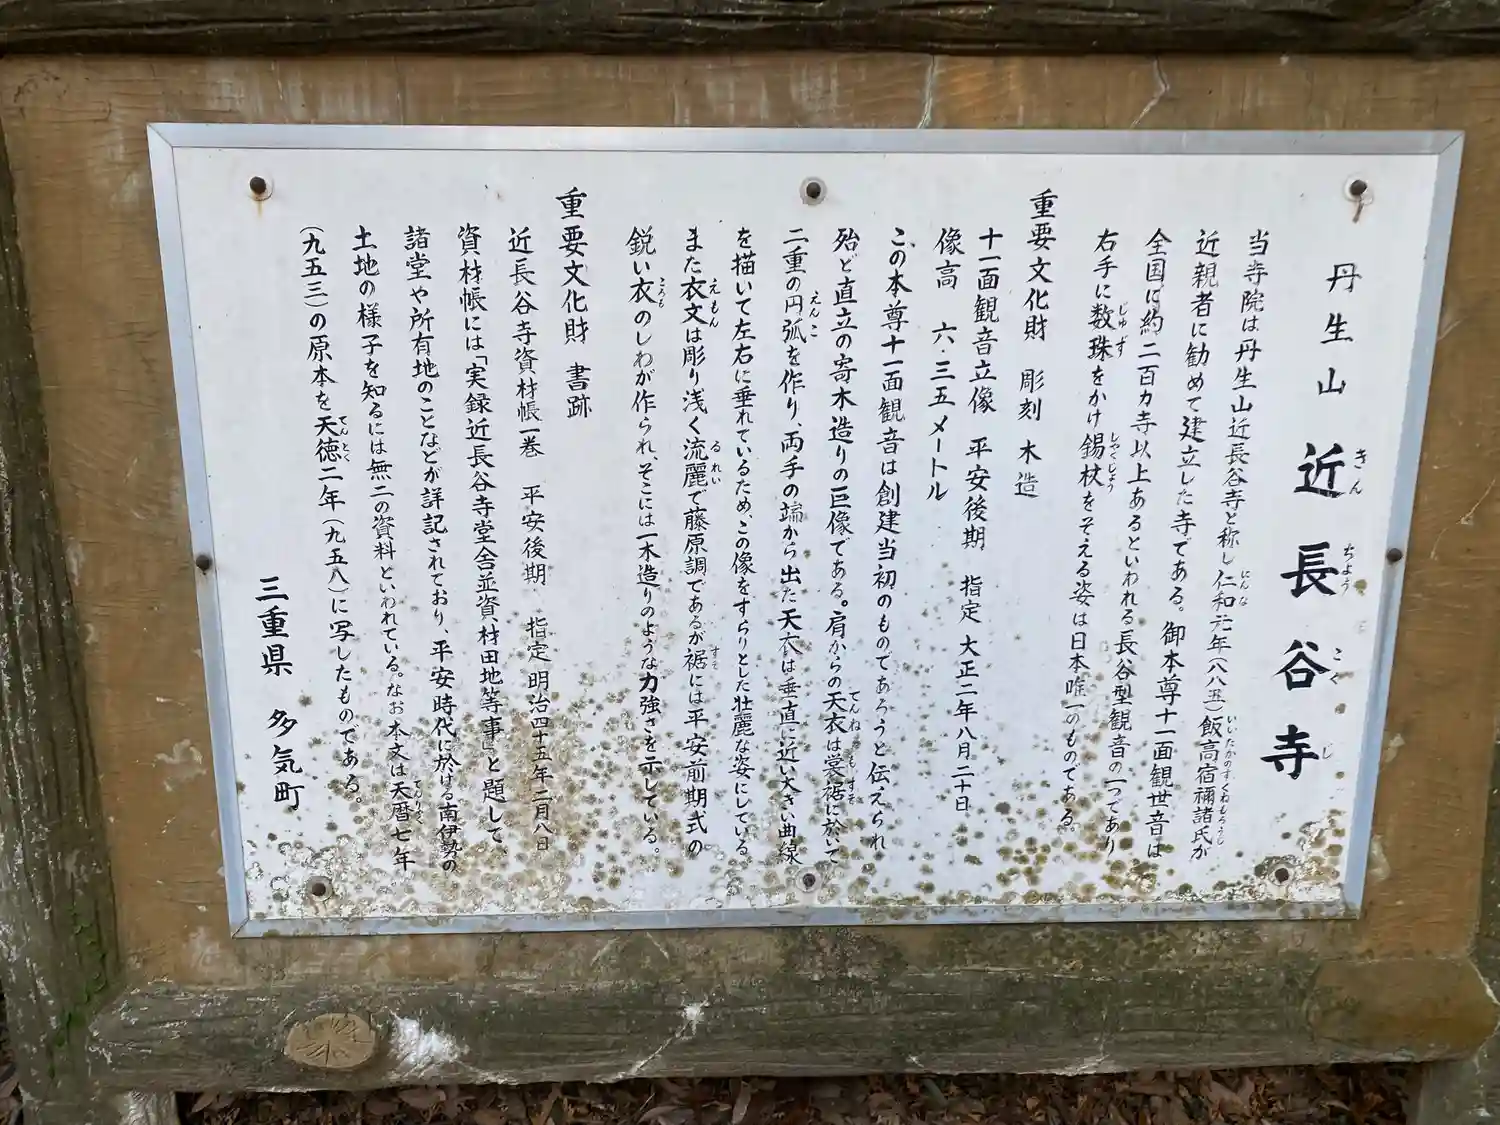 丹生山 近長谷寺
きん ちょう こく じ
当寺院は丹生山近長谷寺と称し仁和元年(八八五)飯高宿禰諸氏が
にんな いいたかのすくねもろうじ
近親者に勧めて建立した寺である。御本尊十一面観世音は
全国に約二百カ寺以上あるといわれる長谷型観音の一つであり
右手に数珠をかけ錫杖をそえる姿は日本唯一のものである。
じゅず しゃくじょう
重要文化財 彫刻 木造
十一面観音立像 平安後期 指定 大正二年八月二十日
像高 六・三五メートル
この本尊十一面観音は創建当初のものであろうと伝えられ
殆ど直立の寄木造りの巨像である。肩からの天衣は裳裾に於いて
てんね もすそ
二重の円弧を作り、両手の端から出た天衣は垂直に近い大きい曲線
えんこ
を描いて左右に垂れているため、この像をすらりとした壮麗な姿にしている
また衣文は彫り浅く流麗で藤原調であるが裾には平安前期式の
えもん るれい すそ
鋭い衣のしわが作られ、そこには一木造りのような力強さを示している。
ころも
重要文化財 書跡
近長谷寺資材帳一巻 平安後期 指定 明治四十五年二月八日
資材帳には「実録近長谷寺堂舎並資材田地等事」と題して
諸堂や所有地のことなどが詳記されており、平安時代に於ける南伊勢の
土地の様子を知るには無二の資料といわれている。なお本文は天暦七年
てんりゃく
(九五三)の原本を天徳二年(九五八)に写したものである。
てんとく
三重県 多気町